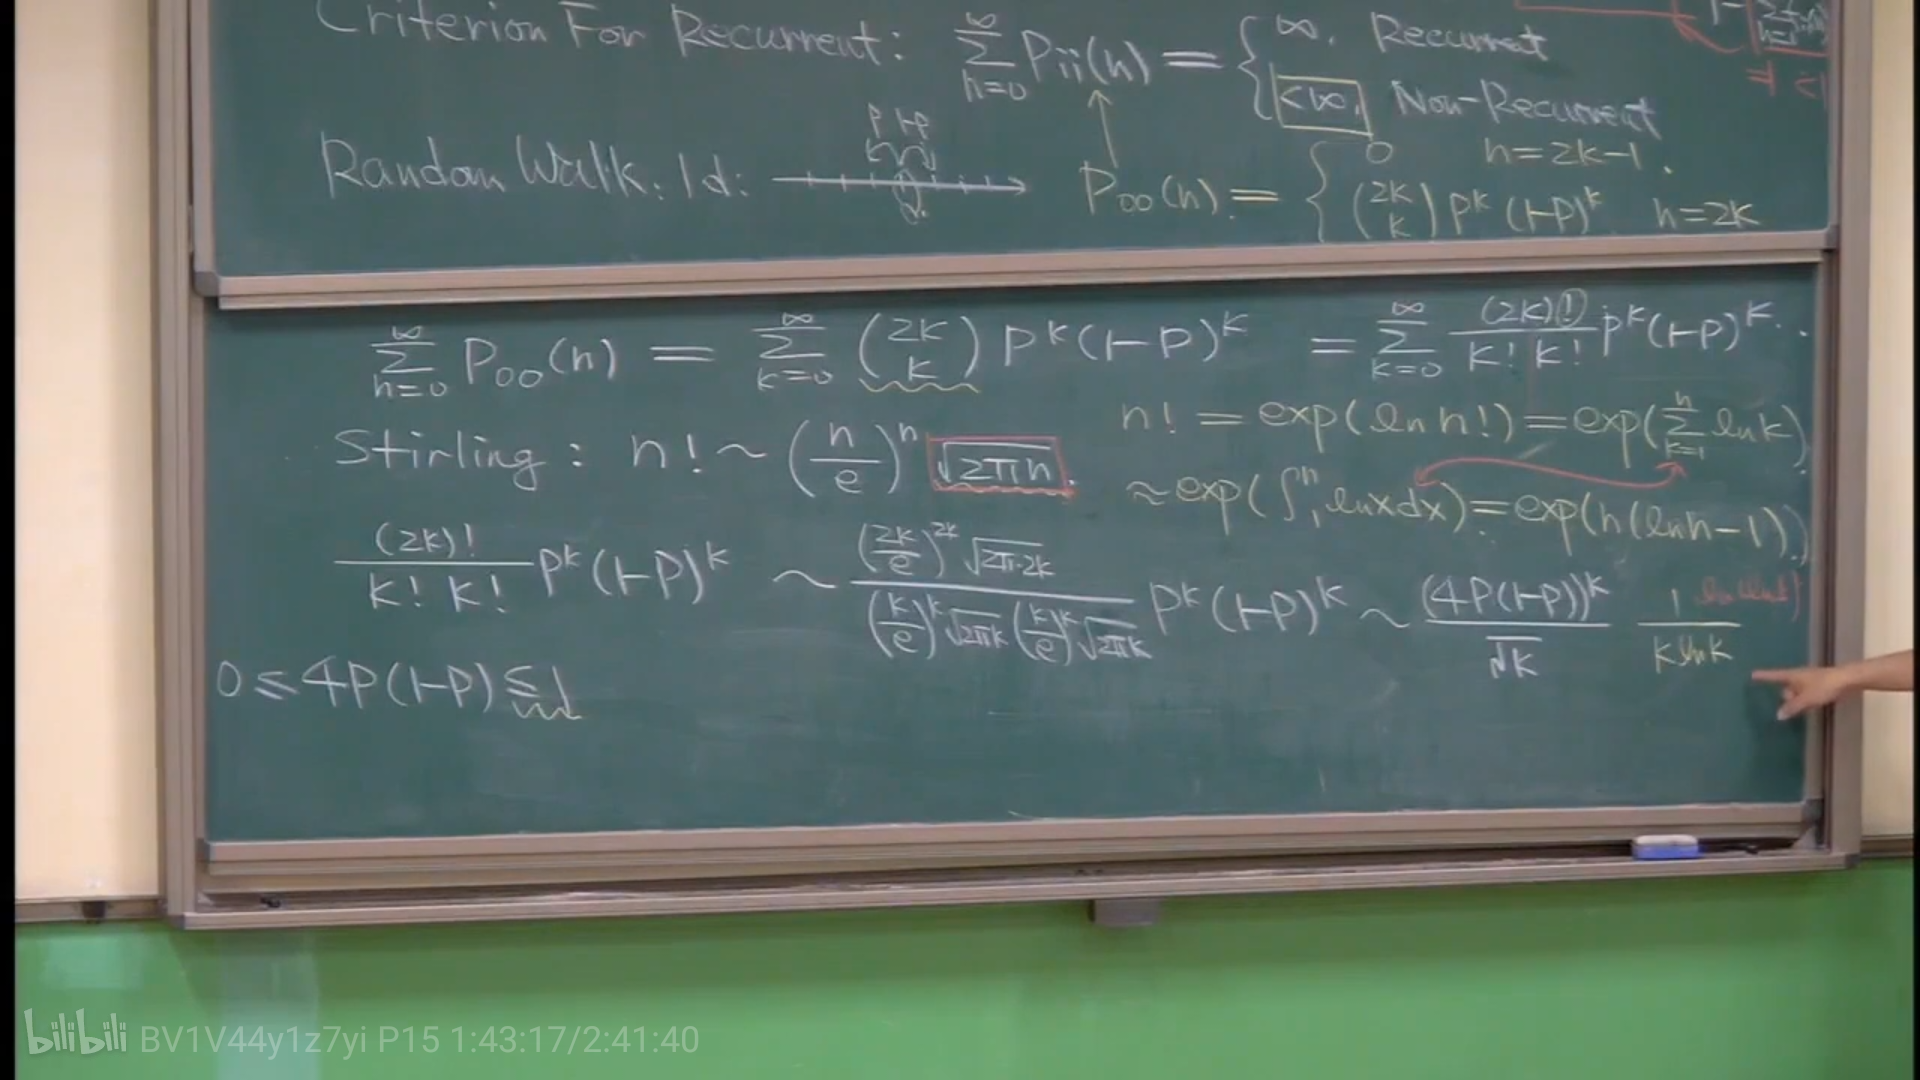 Criterion For Recurrent: ∑_{n=0}^{∞} Pii(n) = { ∞. Recurrent
<∞, Non-Recurrent
P 1-P
Random Walk. 1d: P₀₀(n). = { 0 n=2k-1.
(2k k) P^k (1-P)^k n=2k
∑_{n=0}^{∞} P₀₀(n) = ∑_{k=0}^{∞} (2k k) P^k (1-P)^k = ∑_{k=0}^{∞} (2k)!/(k! k!) P^k (1-P)^k.
n! = exp(ln n!) = exp(∑_{k=1}^{n} ln k)
Stirling: n! ~ (n/e)^n √(2πn).
≈ exp(∫_1^n ln x dx) = exp(n(ln n - 1))
(2k)!/(k! k!) P^k (1-P)^k ~ ((2k/e)^{2k} √(2π·2k))/((k/e)^k √(2πk) (k/e)^k √(2πk)) P^k (1-P)^k ~ (4P(1-P))^k/√k 1/(k ln k)
0 ≤ 4P(1-P) ≤ 1
bilibili BV1V44y1z7yi P15 1:43:17/2:41:40